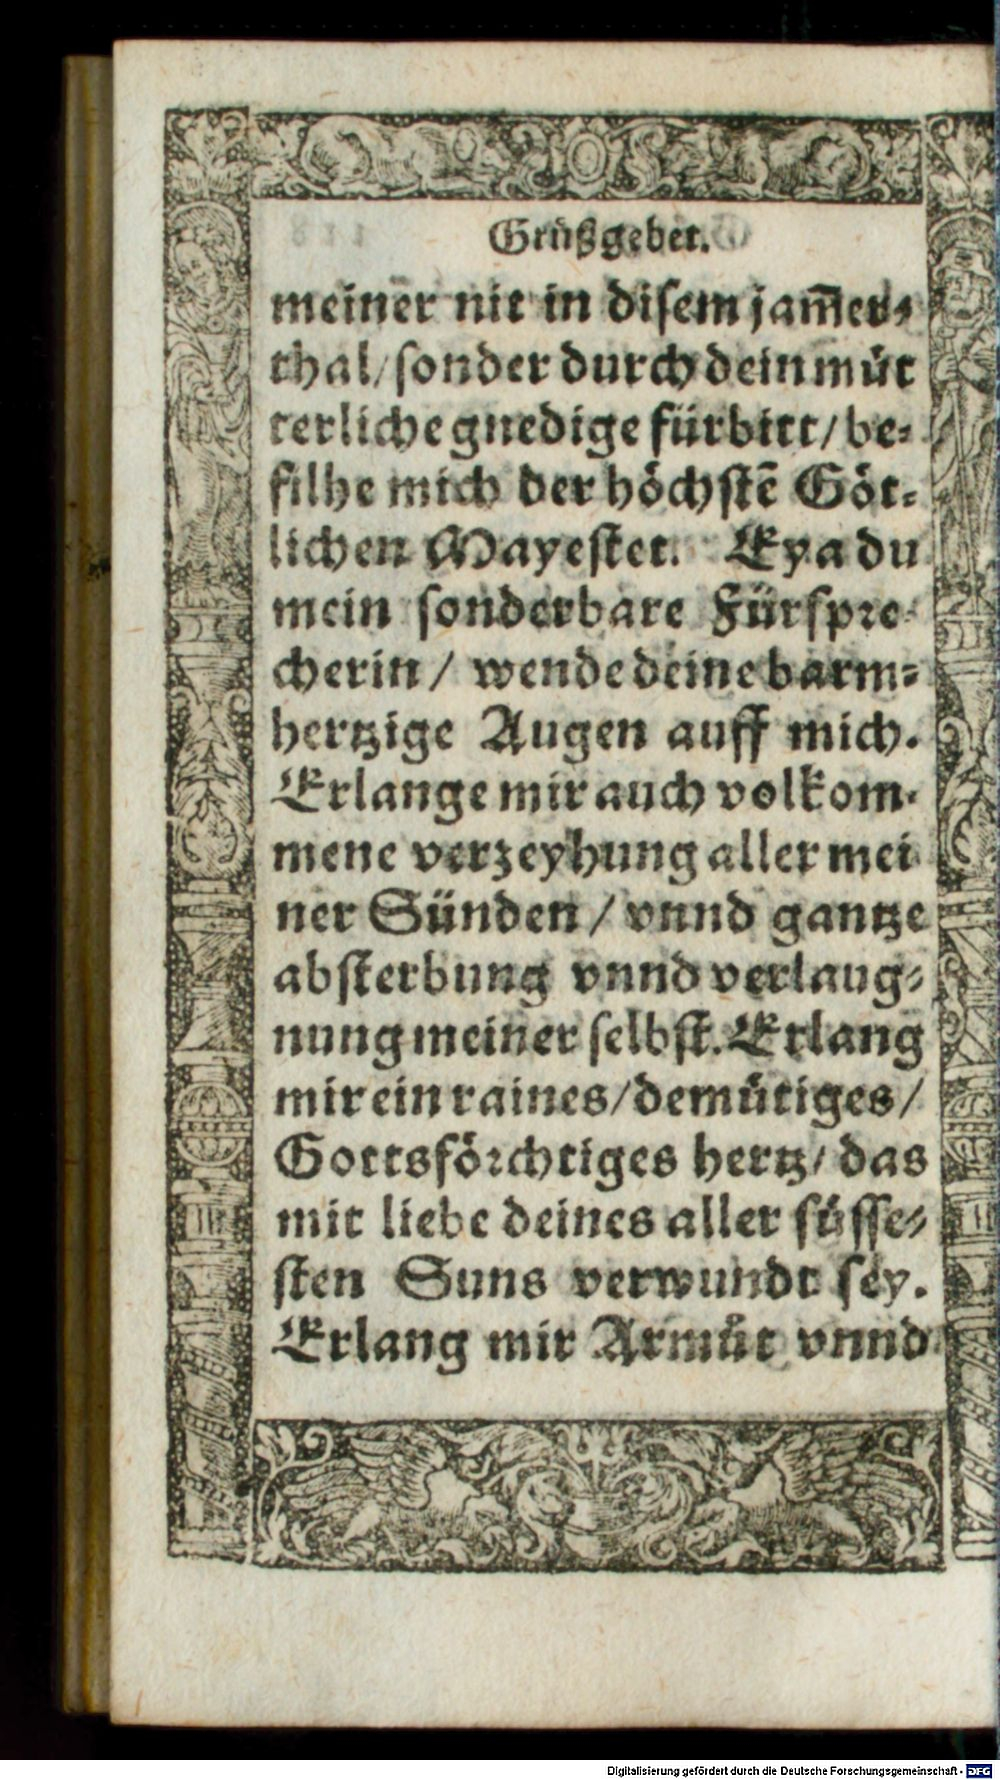 Grüßgebet.
meiner nit in disem jam̅er⸗
thal/sonder durch dein mu᷑t
terliche gnedige fürbitt/be⸗
filhe mich der höchstē Göt⸗
lichen Mayestet. Eya du
mein sonderbare Fürspre⸗
cherin/ wende deine barm⸗
hertzige Augen auff mich.
Erlange mir auch volkom⸗
mene verzeyhung aller mei
ner Sünden/ vnnd gantze
absterbung vnnd verlaug⸗
nung meiner selbst. Erlang
mir ein raines/demütiges/
Gottsförchtiges hertz/ das
mit liebe deines aller süsse⸗
sten Suns verwundt sey.
Erlang mir Armůt vnnd
Digitalisierung gefördert durch die Deutsche Forschungsgemeinschaft - DFG